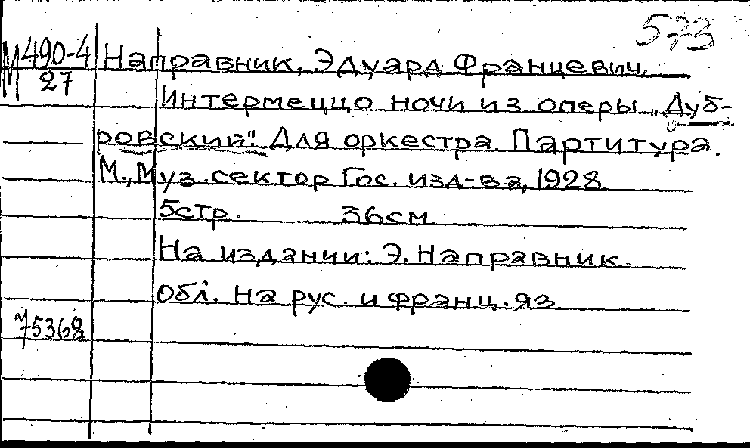 573
М490-4
27
Направник, Эдуард Францевич.
Интермеццо ночи из оперы „Дуб-
ровский". Для оркестра. Партитура.
М., Муз. сектор Гос. изд-ва, 1928.
5стр. 36см.
На издании: Э. Направник.
Обл. на рус. и франц. яз.
75368